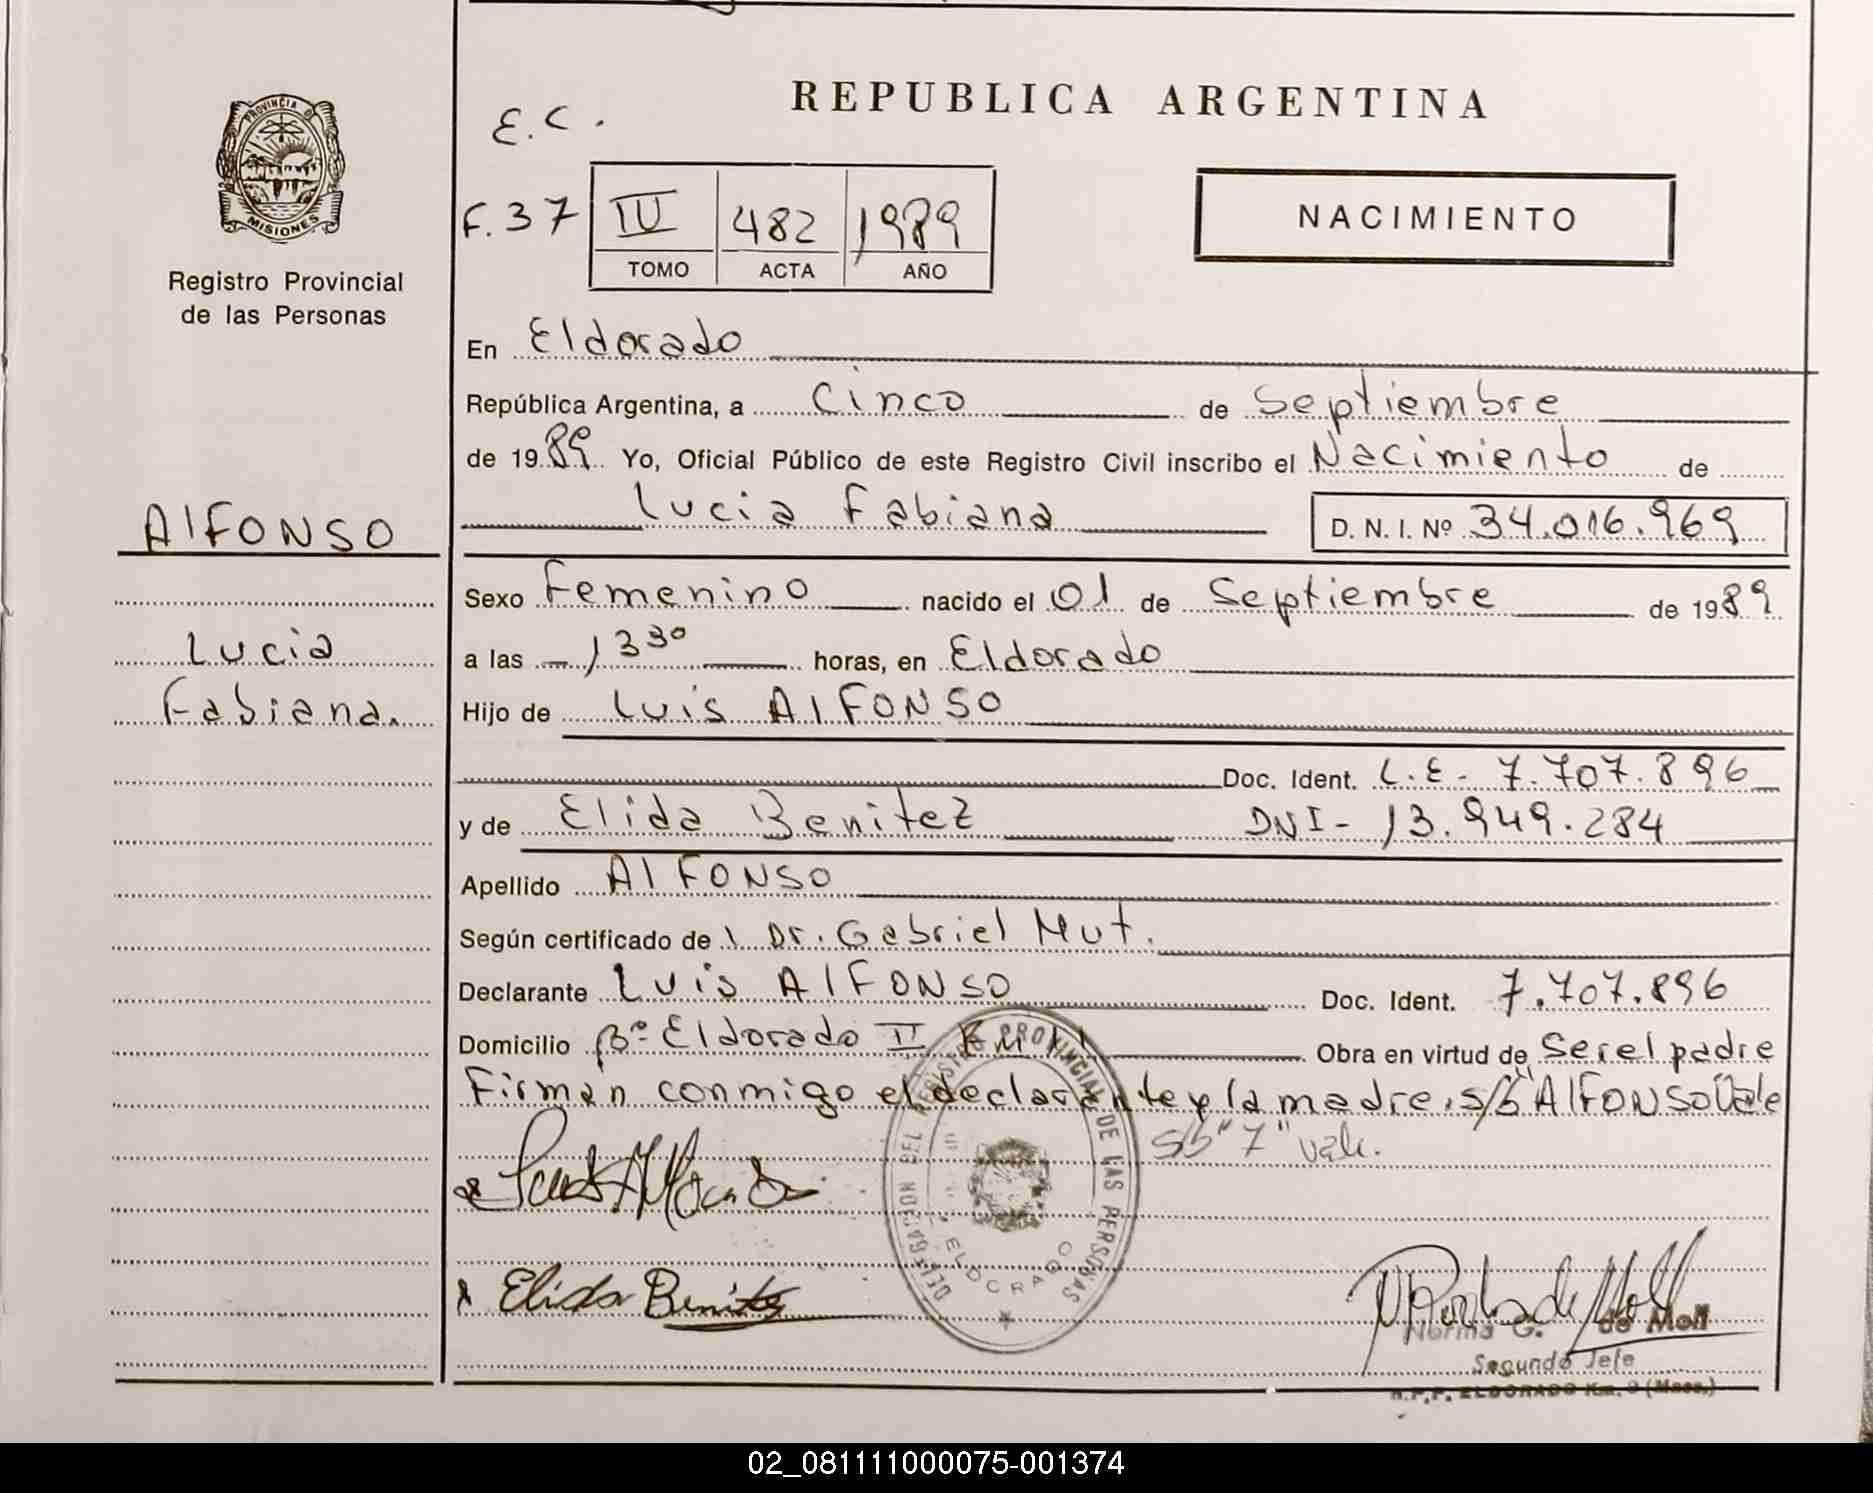 REPUBLICA ARGENTINA
PROVINCIA DE
MISIONES
Registro Provincial
de las Personas
E.C.
F. 37
IV 482 1989
TOMO ACTA AÑO
NACIMIENTO
En Eldorado
República Argentina, a Cinco de Septiembre
de 1989 Yo, Oficial Público de este Registro Civil inscribo el Nacimiento de
Lucia Fabiana D. N. I. Nº 34.016.969
AlFONSO
Lucia
Fabiana.
Sexo Femenino nacido el 01 de Septiembre de 1989
a las 13 30 horas, en Eldorado
Hijo de Luis AlFONSO
Doc. Ident. L.E - 7.707.896
y de Elida Benitez DNI - 13.949.284
Apellido AlFONSO
Según certificado de l Dr. Gabriel Mut.
Declarante Luis AlFONSO Doc. Ident. 7.707.896
Domicilio Bº Eldorado II Obra en virtud de Ser el padre
Firman conmigo el declarante y la madre. s/b "AlFONSO" Vale
Sb "7" vale.
Elida Benitez
DELEGACION DEL REGISTRO PROVINCIAL DE LAS PERSONAS
ELDORADO
Norma G. de Moll
Segundo Jefe
R.P.P. ELDORADO Km. 9 (Mnes.)
02_081111000075-001374